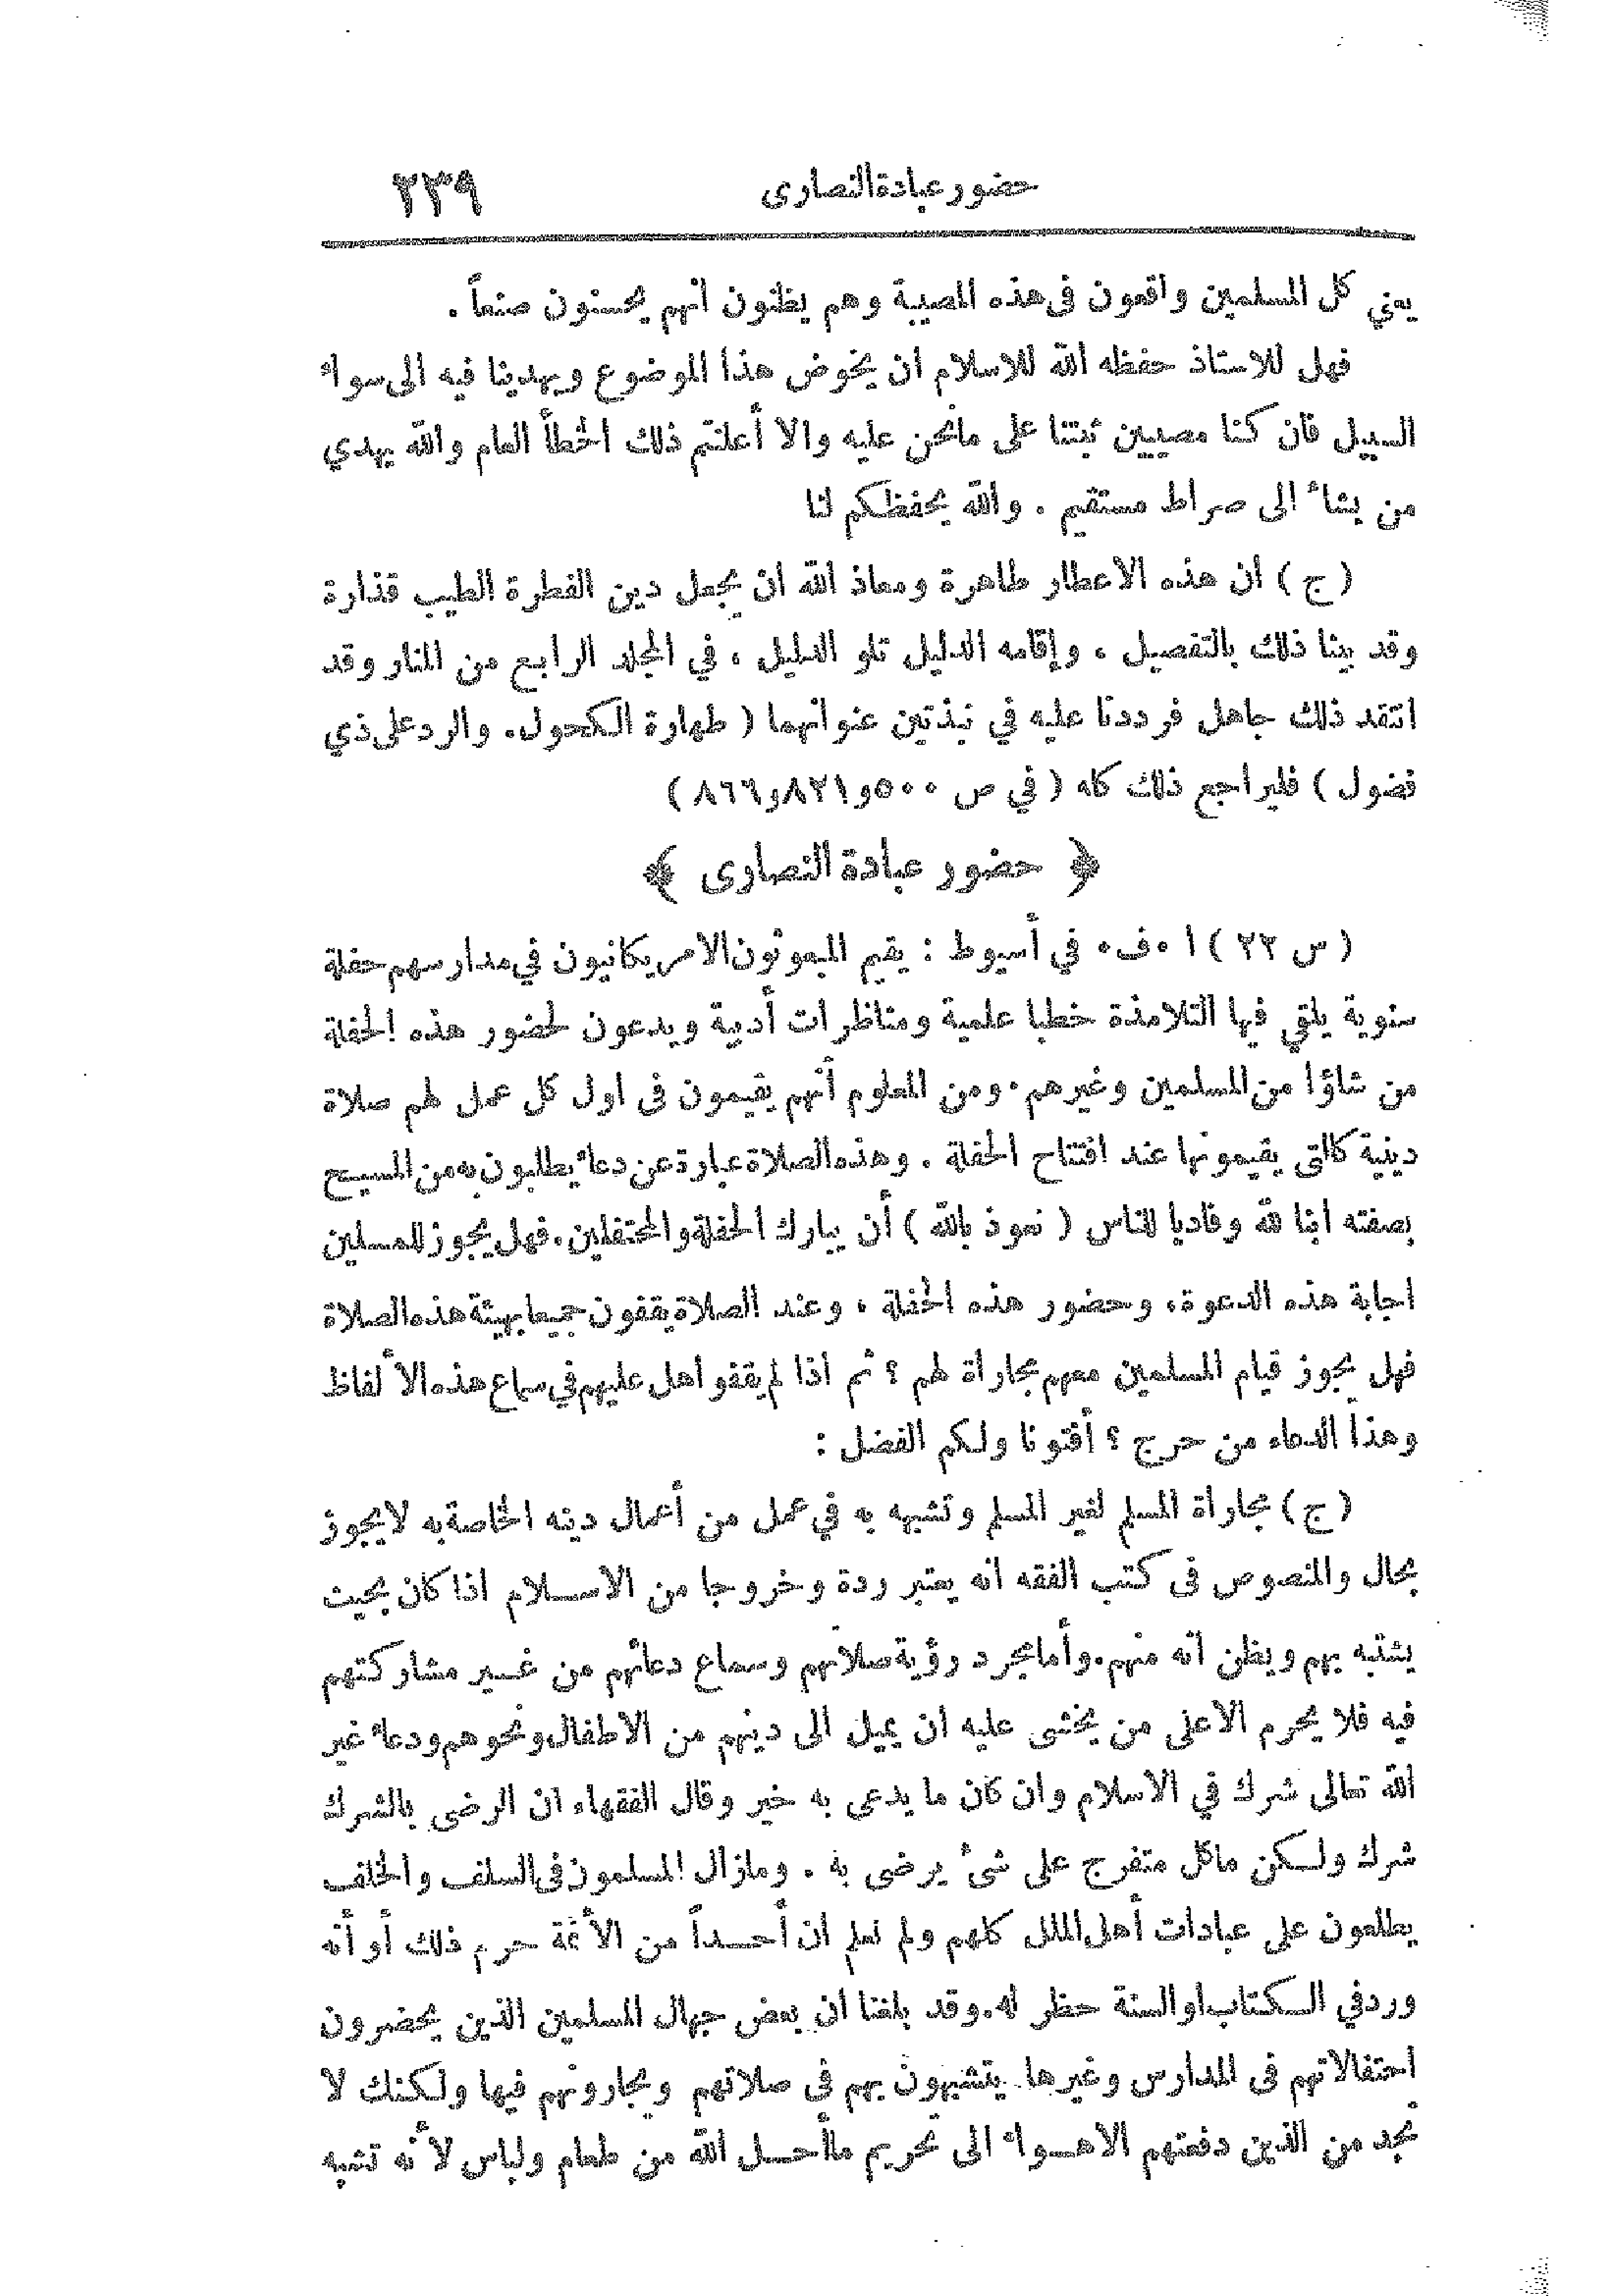 حضور عبادة النصارى ٢٣٩
يعني كل المسلمين واقعون فى هذه المصيبة وهم يظنون انهم يحسنون صنعاً .
فهل للاستاذ حفظه الله للاسلام ان يخوض هذا الموضوع ويهدينا فيه الى سواء
السبيل فان كنا مصيبين ثبتنا على مانحن عليه والا أعلنتم ذلك الخطأ العام والله يهدي
من يشاء الى صراط مستقيم . والله يحفظكم لنا
( ج ) ان هذه الاعطار طاهرة ومعاذ الله ان يجعل دين الفطرة الطيب قذارة
وقد بينا ذلك بالتفصيل ، وإقامه الدليل تلو الدليل ، في المجلد الرابع من المنار وقد
انتقد ذلك جاهل فرددنا عليه في نبذتين عنوانهما ( طهارة الكحول. والرد على ذي
فضول ) فليراجع ذلك كله ( في ص ٥٠٠ و٨٢١ و٨٦٦ )
﴿ حضور عبادة النصارى ﴾
( س ٢٢ ) ا ٠ف٠ في أسيوط : يقيم المبعوثون الامريكانيون في مدارسهم حفلة
سنوية يلقي فيها التلامذة خطبا علمية ومناظرات أدبية ويدعون لحضور هذه الحفلة
من شاؤا من المسلمين وغيرهم ٠ ومن المعلوم أنهم يقيمون فى اول كل عمل لهم صلاة
دينية كالتى يقيمونها عند افتتاح الحفلة . وهذه الصلاة عبارة عن دعاء يطلبون به من المسيح
بصفته ابنا لله وفاديا للناس ( نعوذ بالله ) أن يبارك الحفلة والمحتفلين . فهل يجوز للمسلمين
اجابة هذه الدعوة ، وحضور هذه الحفلة ، وعند الصلاة يقفون جميعا بهيئة هذه الصلاة
فهل يجوز قيام المسلمين معهم مجاراة لهم ؟ ثم اذا لم يقفوا هل عليهم في سماع هذه الألفاظ
وهذا الدعاء من حرج ؟ أفتونا ولكم الفضل :
( ج ) مجاراة المسلم لغير المسلم وتشبهه به في عمل من أعمال دينه الخاصة به لا يجوز
بحال والمنصوص فى كتب الفقه انه يعتبر ردة وخروجا من الاسلام اذا كان بحيث
يشتبه بهم ويظن انه منهم . وأما مجرد رؤية صلاتهم وسماع دعائهم من غير مشاركتهم
فيه فلا يحرم الا على من يخشى عليه ان يميل الى دينهم من الاطفال ونحوهم ودعاء غير
الله تعالى شرك في الاسلام وان كان ما يدعى به خير وقال الفقهاء ان الرضى بالشرك
شرك ولكن ماكل متفرج على شئ يرضى به . ومازال المسلمون فى السلف والخلف
يطلعون على عبادات أهل الملل كلهم ولم نعلم ان أحداً من الأئمة حرم ذلك أو أنه
ورد في الكتاب او السنة حظر له . وقد بلغنا ان بعض جهال المسلمين الذين يحضرون
احتفالاتهم فى المدارس وغيرها يتشبهون بهم فى صلاتهم ويجارونهم فيها ولكنك لا
تجد من الذين دفعتهم الاهواء الى تحريم ماأحل الله من طعام ولباس لأنه تشبه